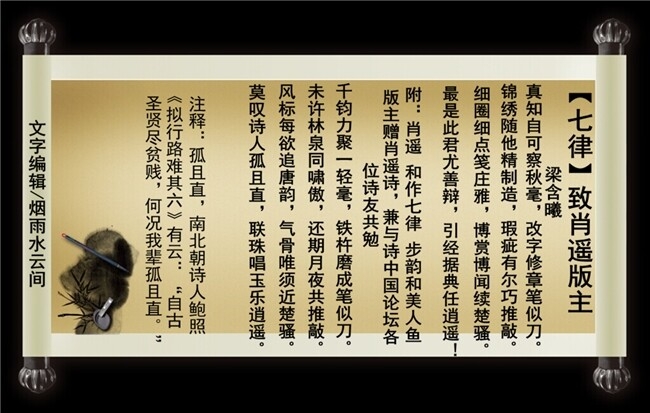 【七律】致肖遥版主
梁含曦
真知自可察秋毫，改字修章笔似刀。
锦绣随他精制造，瑕疵有尔巧推敲。
细圈细点笺庄雅，博赏博闻续楚骚。
最是此君尤善辩，引经据典任逍遥！
附：肖遥 和作七律 步韵和美人鱼
版主赠肖遥诗，兼与诗中国论坛各
位诗友共勉
千钧力聚一轻毫，铁杵磨成笔似刀。
未许林泉同啸傲，还期月夜共推敲。
风标每欲追唐韵，气骨唯须近楚骚。
莫叹诗人孤且直，联珠唱玉乐逍遥。
注释：孤且直，南北朝诗人鲍照
《拟行路难其六》有云：“自古
圣贤尽贫贱，何况我辈孤且直。”
文字编辑/烟雨水云间